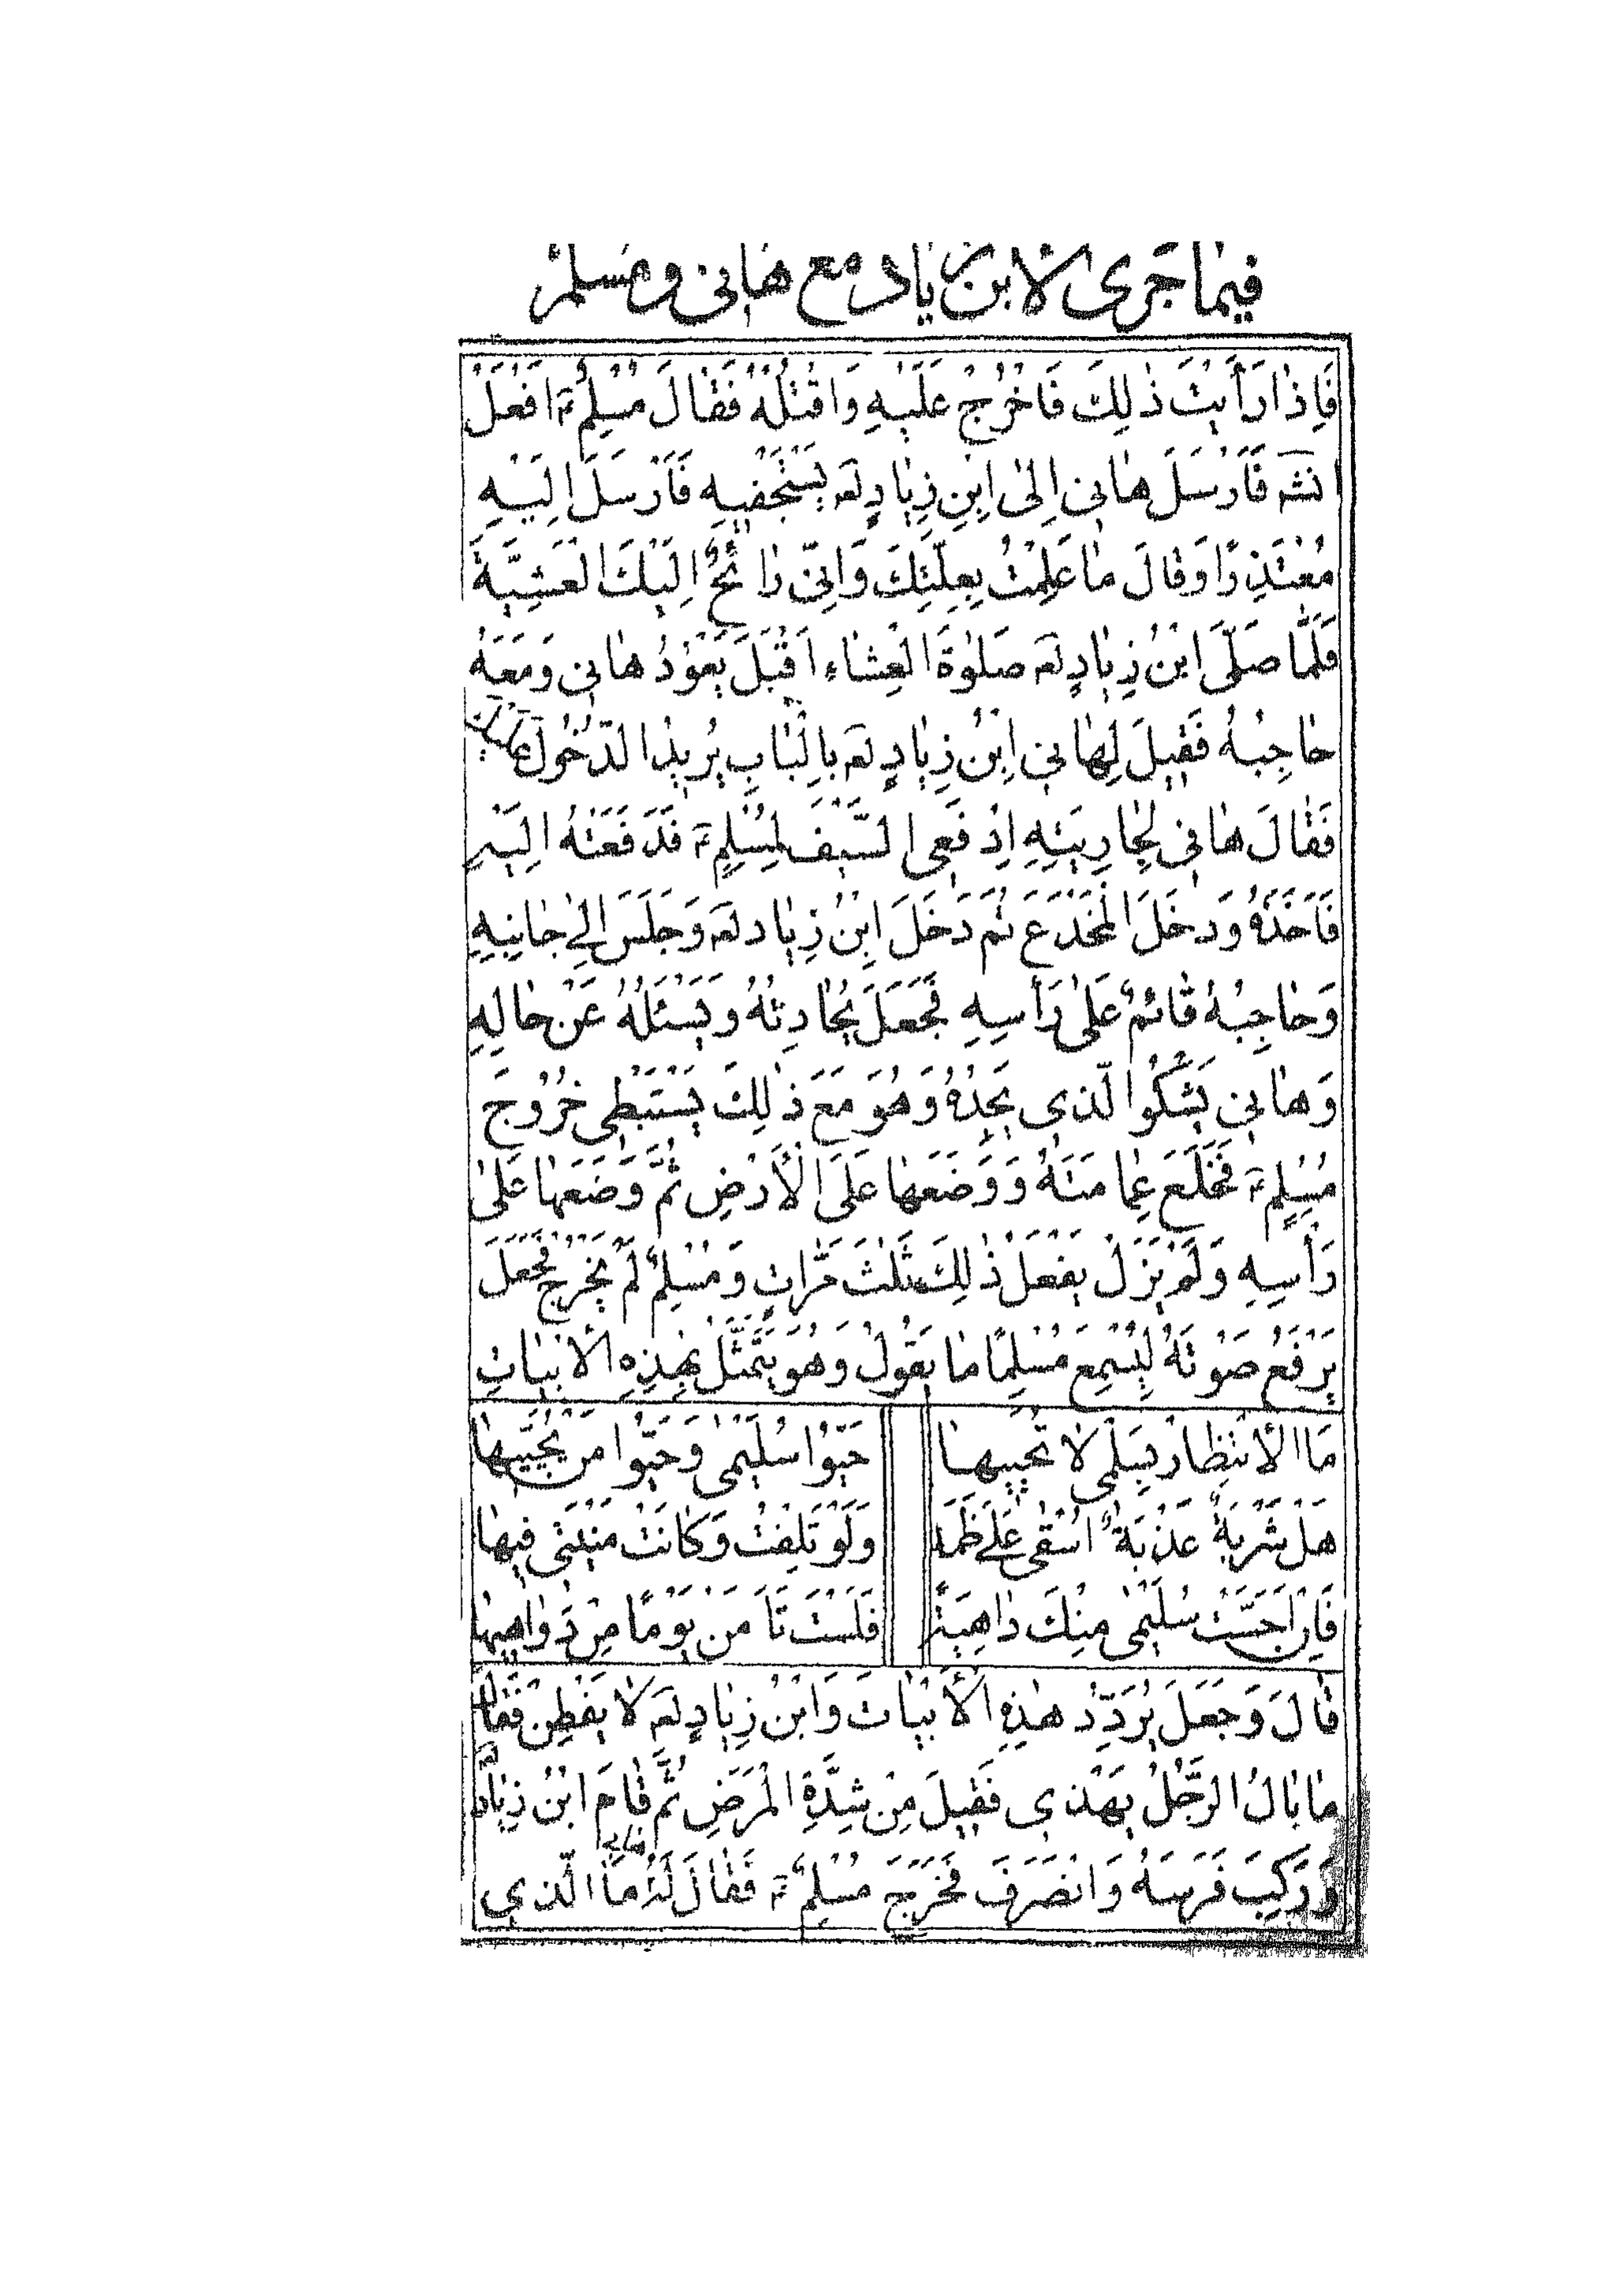 فيما جرى لابن زياد مع هاني ومسلم
فَاِذٰا رَأَيْتَ ذٰلِكَ فَاخْرُجْ عَلَيْهِ وَاقْتُلْهُ فَقٰالَ مُسْلِمٌ ۴ اَفْعَلُ
انشه فَاَرْسَلَ هٰانِي اِلىٰ ابْنِ زِيٰادٍ لعه يَسْتَجْفِيهِ فَاَرْسَلَ اِلَيْهِ
مُعْتَذِرًا وَقٰالَ مٰا عَلِمْتُ بِعِلَّتِكَ وَاِنّي رٰائِحٌ اِلَيْكَ الْعَشِيَّةَ
فَلَمّٰا صَلّىَ ابْنُ زِيٰادٍ لعه صَلوٰةَ الْعِشٰاءِ اَقْبَلَ يَعُوْدُ هٰانِي وَمَعَهُ
حٰاجِبُهُ فَقِيلَ لِهٰانِي اِبْنُ زِيٰادٍ لعه بِالْبٰابِ يُرِيدُ الدُّخُولَ عَلَيْكَ
فَقٰالَ هٰانِي لِجٰارِيَتِهِ اِدْفَعِي السَّيْفَ لِمُسْلِمٍ ۴ فَدَفَعَتْهُ اِلَيْهِ
فَاَخَذَهُ وَدَخَلَ الْمَخْدَعَ ثُمَّ دَخَلَ ابْنُ زِيٰاد لعه وَجَلَسَ اِلىٰ جٰانِبِهِ
وَحٰاجِبُهُ قٰائِمٌ عَلىٰ رَأْسِهِ فَجَعَلَ يُحٰادِثُهُ وَيَسْئَلُهُ عَنْ حٰالِهِ
وَهٰانِي يَشْكُوا الَّذي يَجِدُهُ وَهُوَ مَعَ ذٰلِكَ يَسْتَبْطِي خُرُوجَ
مُسْلِمٍ ۴ فَخَلَعَ عِمٰامَتَهُ وَوَضَعَهٰا عَلَى الْأَرْضِ ثُمَّ وَضَعَهٰا عَلىٰ
رَأْسِهِ وَلَمْ يَزَلْ يَفْعَلُ ذٰلِكَ ثَلٰثَ مَرّٰاتٍ وَمُسْلِمٌ لَمْ يَخْرُجْ فَجَعَلَ
يَرْفَعُ صَوْتَهُ لِيُسْمِعَ مُسْلِمًا مٰا يَقُولُ وَهُوَ يَتَمَثَّلُ بِهٰذِهِ الْاَبْيٰاتِ
مَا الْاِنْتِظٰارُ بِسَلْمىٰ لاٰ تُحَيِّيهٰا حَيُّوا سُلَيْمىٰ وَحَيُّوا مَنْ يُحَيِّيهٰا
هَلْ شَرْبَةٌ عَذْبَةٌ اُسْقىٰ عَلىٰ ظَمَاءٍ وَلَوْ تَلِفْتُ وَكٰانَتْ مَنِيَّتي فِيهٰا
فَاِنْ اَحَسَّتْ سُلَيْمىٰ مِنْكَ دٰاهِيَةً فَلَسْتَ تَأمَنُ يَوْمًا مِنْ دَوٰاهِيهٰا
قٰالَ وَجَعَلَ يُرَدِّدُ هٰذِهِ الْأَبْيٰاتَ وَابْنُ زِيٰادٍ لعه لاٰ يَفْطِنُ فَقٰالَ
مٰا بٰالُ الرَّجُلُ يَهْذي فَقِيلَ مِنْ شِدَّةِ الْمَرَضِ ثُمَّ قٰامَ ابْنُ زِيٰادٍ لعه
وَرَكِبَ فَرَسَهُ وَانْصَرَفَ فَخَرَجَ مُسْلِمٌ ۴ فَقٰالَ لَهُ هاني مَا الَّذي